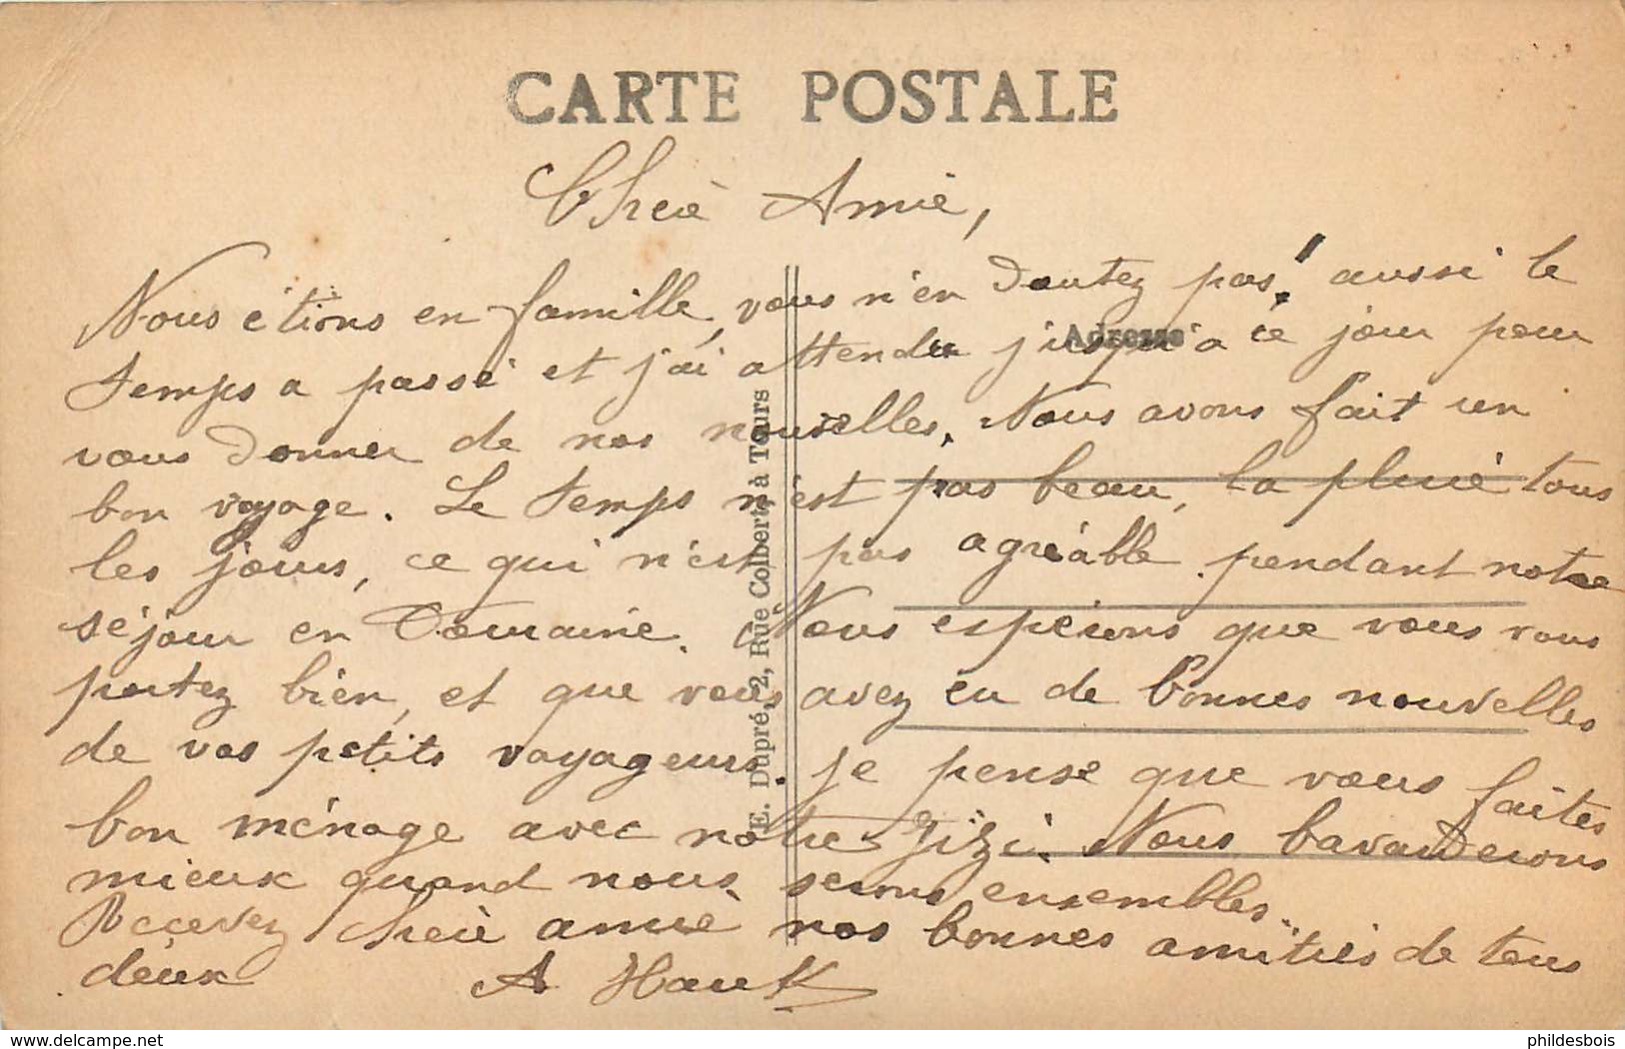 CARTE POSTALE
Chère Amie,
Nous étions en famille, vous n'en doutez pas! aussi le
temps a passé et j'ai attendu jusqu'à ce jour pour
Adresse
vous donner de nos nouvelles. Nous avons fait un
bon voyage. Le temps n'est pas beau, la pluie tous
les jours, ce qui n'est pas agréable pendant notre
séjour en Touraine. Nous espérons que vous vous
portez bien, et que vous avez eu de bonnes nouvelles
de vos petits voyageurs. je pense que vous faites
bon ménage avec notre Zizi. Nous bavarderons
mieux quand nous serons ensembles.
Recevez chère amie nos bonnes amitiés de tous
deux A Hauk
E. Dupré, 2, Rue Colbert, à Tours
www.delcampe.net
phildesbois